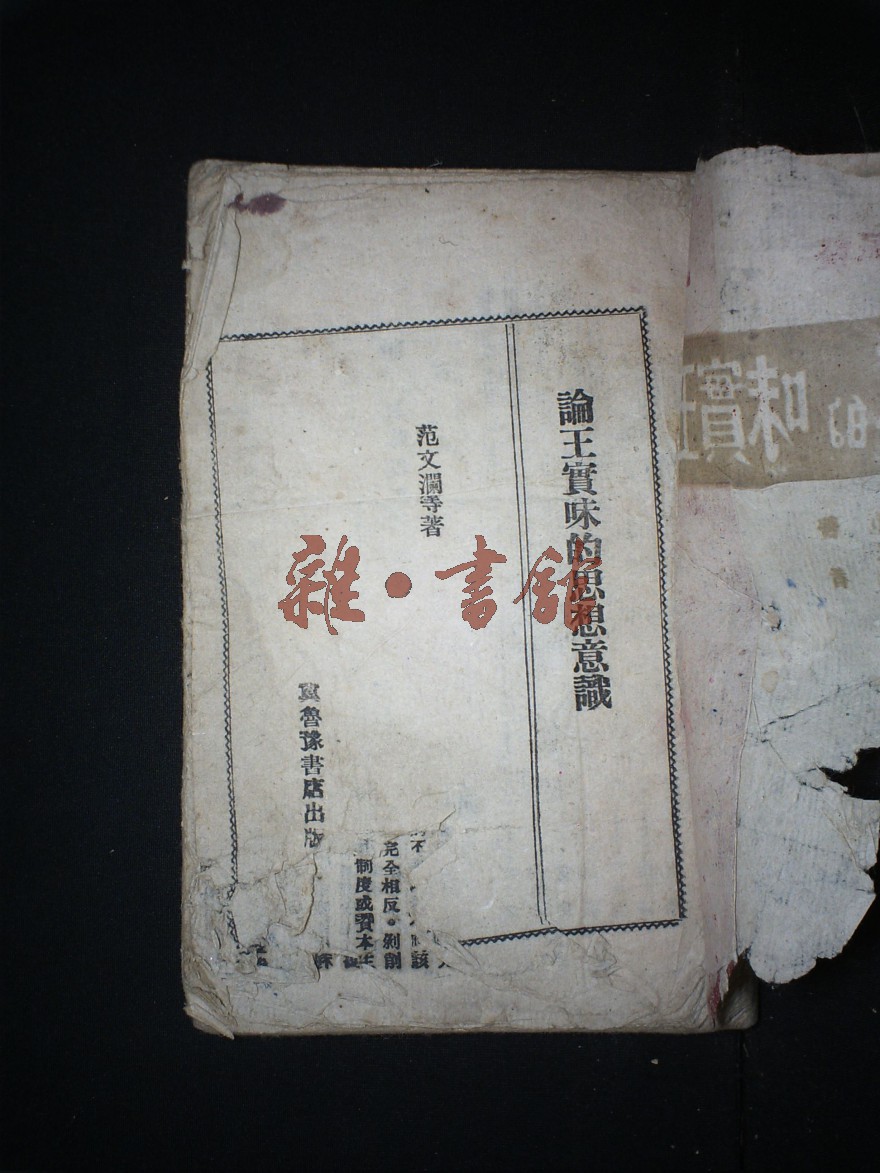 論王實味的思想意識
范文瀾等著
冀魯豫書店出版
不
該
完全相反。剝削
制度或資本主
雜·書館
味實王
的